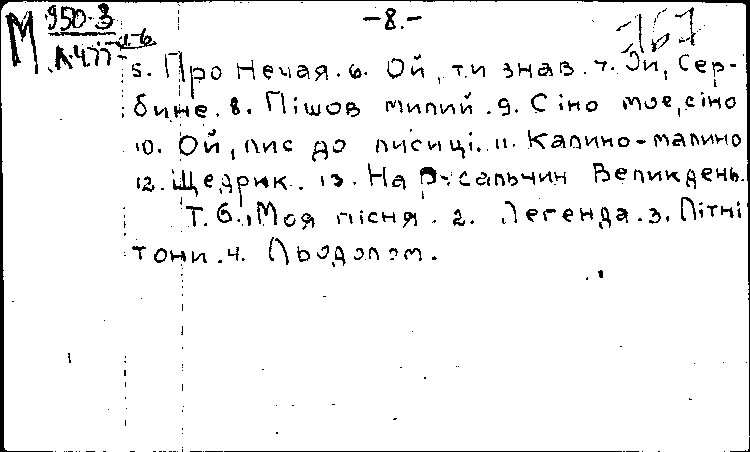 М 950-3 -8.- 767
Л477 1-6
5. Про Нечая. 6. Ой, ти знав. 7. Ой, Сер-
бине. 8. Пішов милий. 9. Сіно моє, сіно
10. Ой, лис до лисиці. 11. Калино-малино
12. Щедрик. 13. На Русальчин Великдень.
Т. 6. 1. Моя пісня. 2. Легенда. 3. Літні
тони. 4. Льодолом.